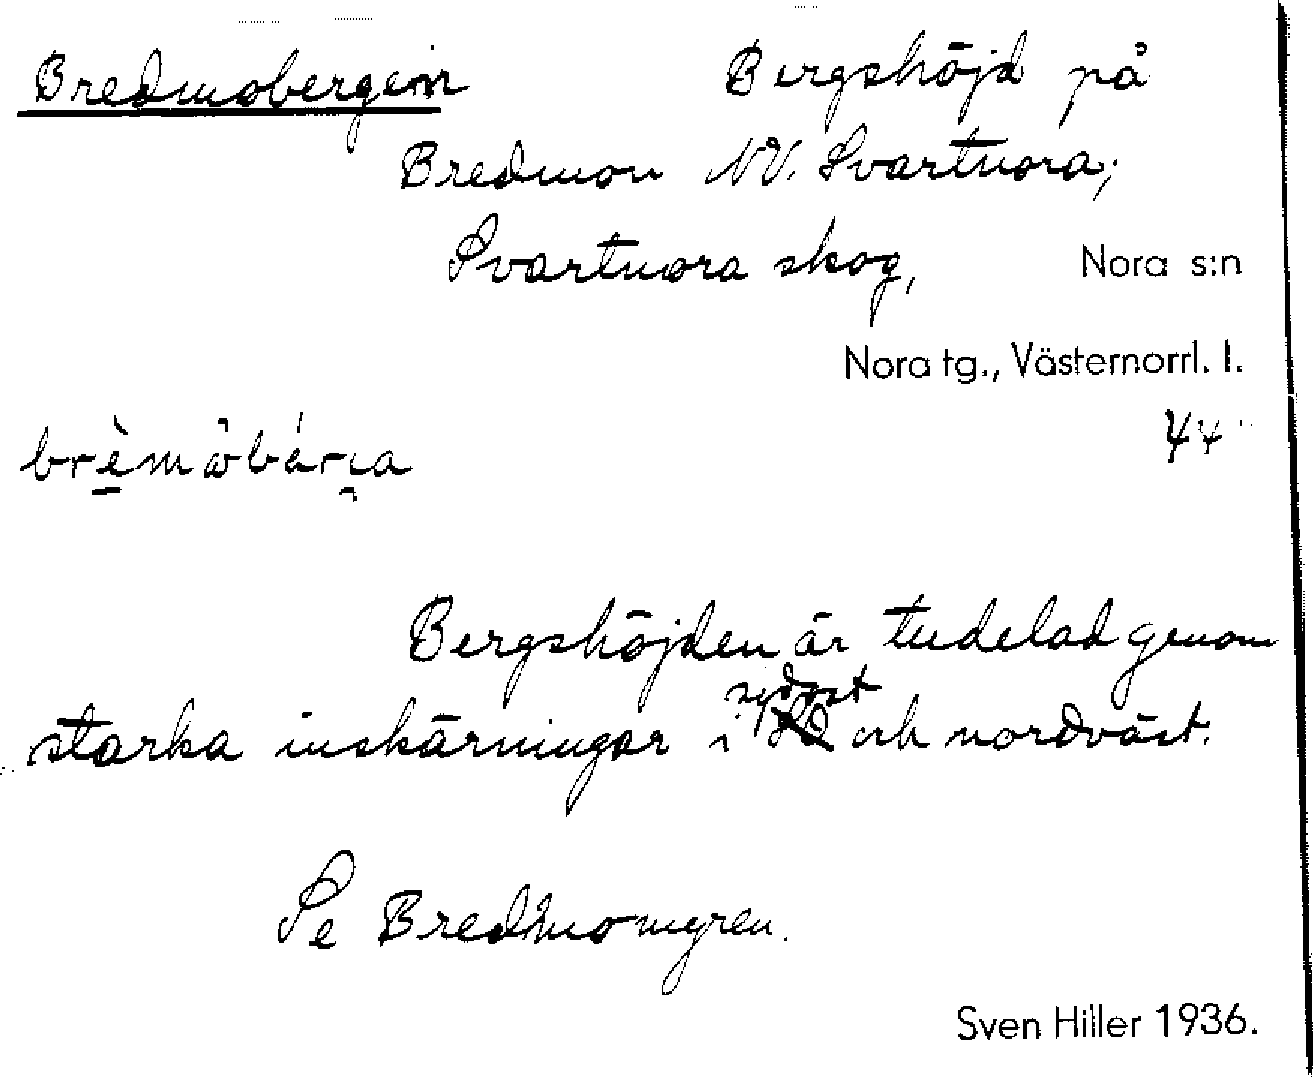 Bredmobergen Bergshöjd på
Bredmon NV. Svartnora;
Svartnora skog, Nora s:n
Nora tg., Västernorrl. l.
Bergshöjden är tudelad genom
starka inskärningar i sydost och nordväst.
Se Bredmomyren.
Sven Hiller 1936.